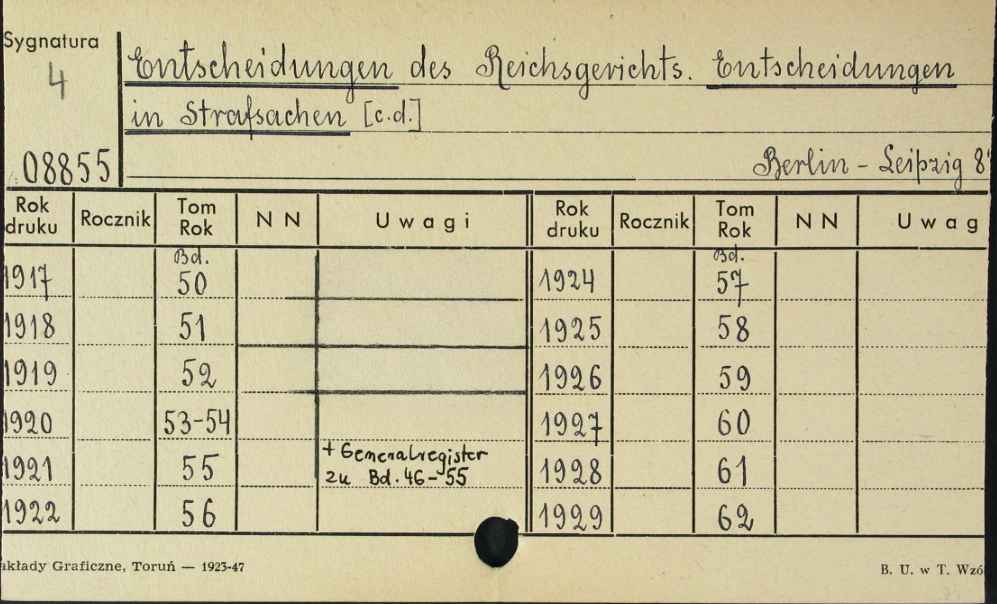 Sygnatura
4
08855
Entscheidungen des Reichsgerichts. Entscheidungen
in Strafsachen [c.d.]
Berlin - Leipzig 8°
Rok druku Rocznik Tom Rok N N Uwagi Rok druku Rocznik Tom Rok N N Uwag
Bd. Bd.
1917 50 1924 57
1918 51 1925 58
1919 52 1926 59
1920 53-54 1927 60
1921 55 + Generalregister zu Bd. 46-55 1928 61
1922 56 1929 62
akłady Graficzne, Toruń — 1923-47
B. U. w T. Wzó